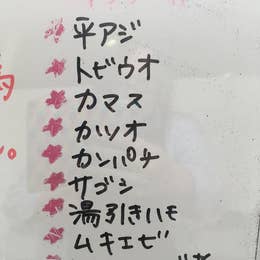 平アジ
トビウオ
カマス
カツオ
カンパチ
サゴシ
湯引きハモ
ムキエビ